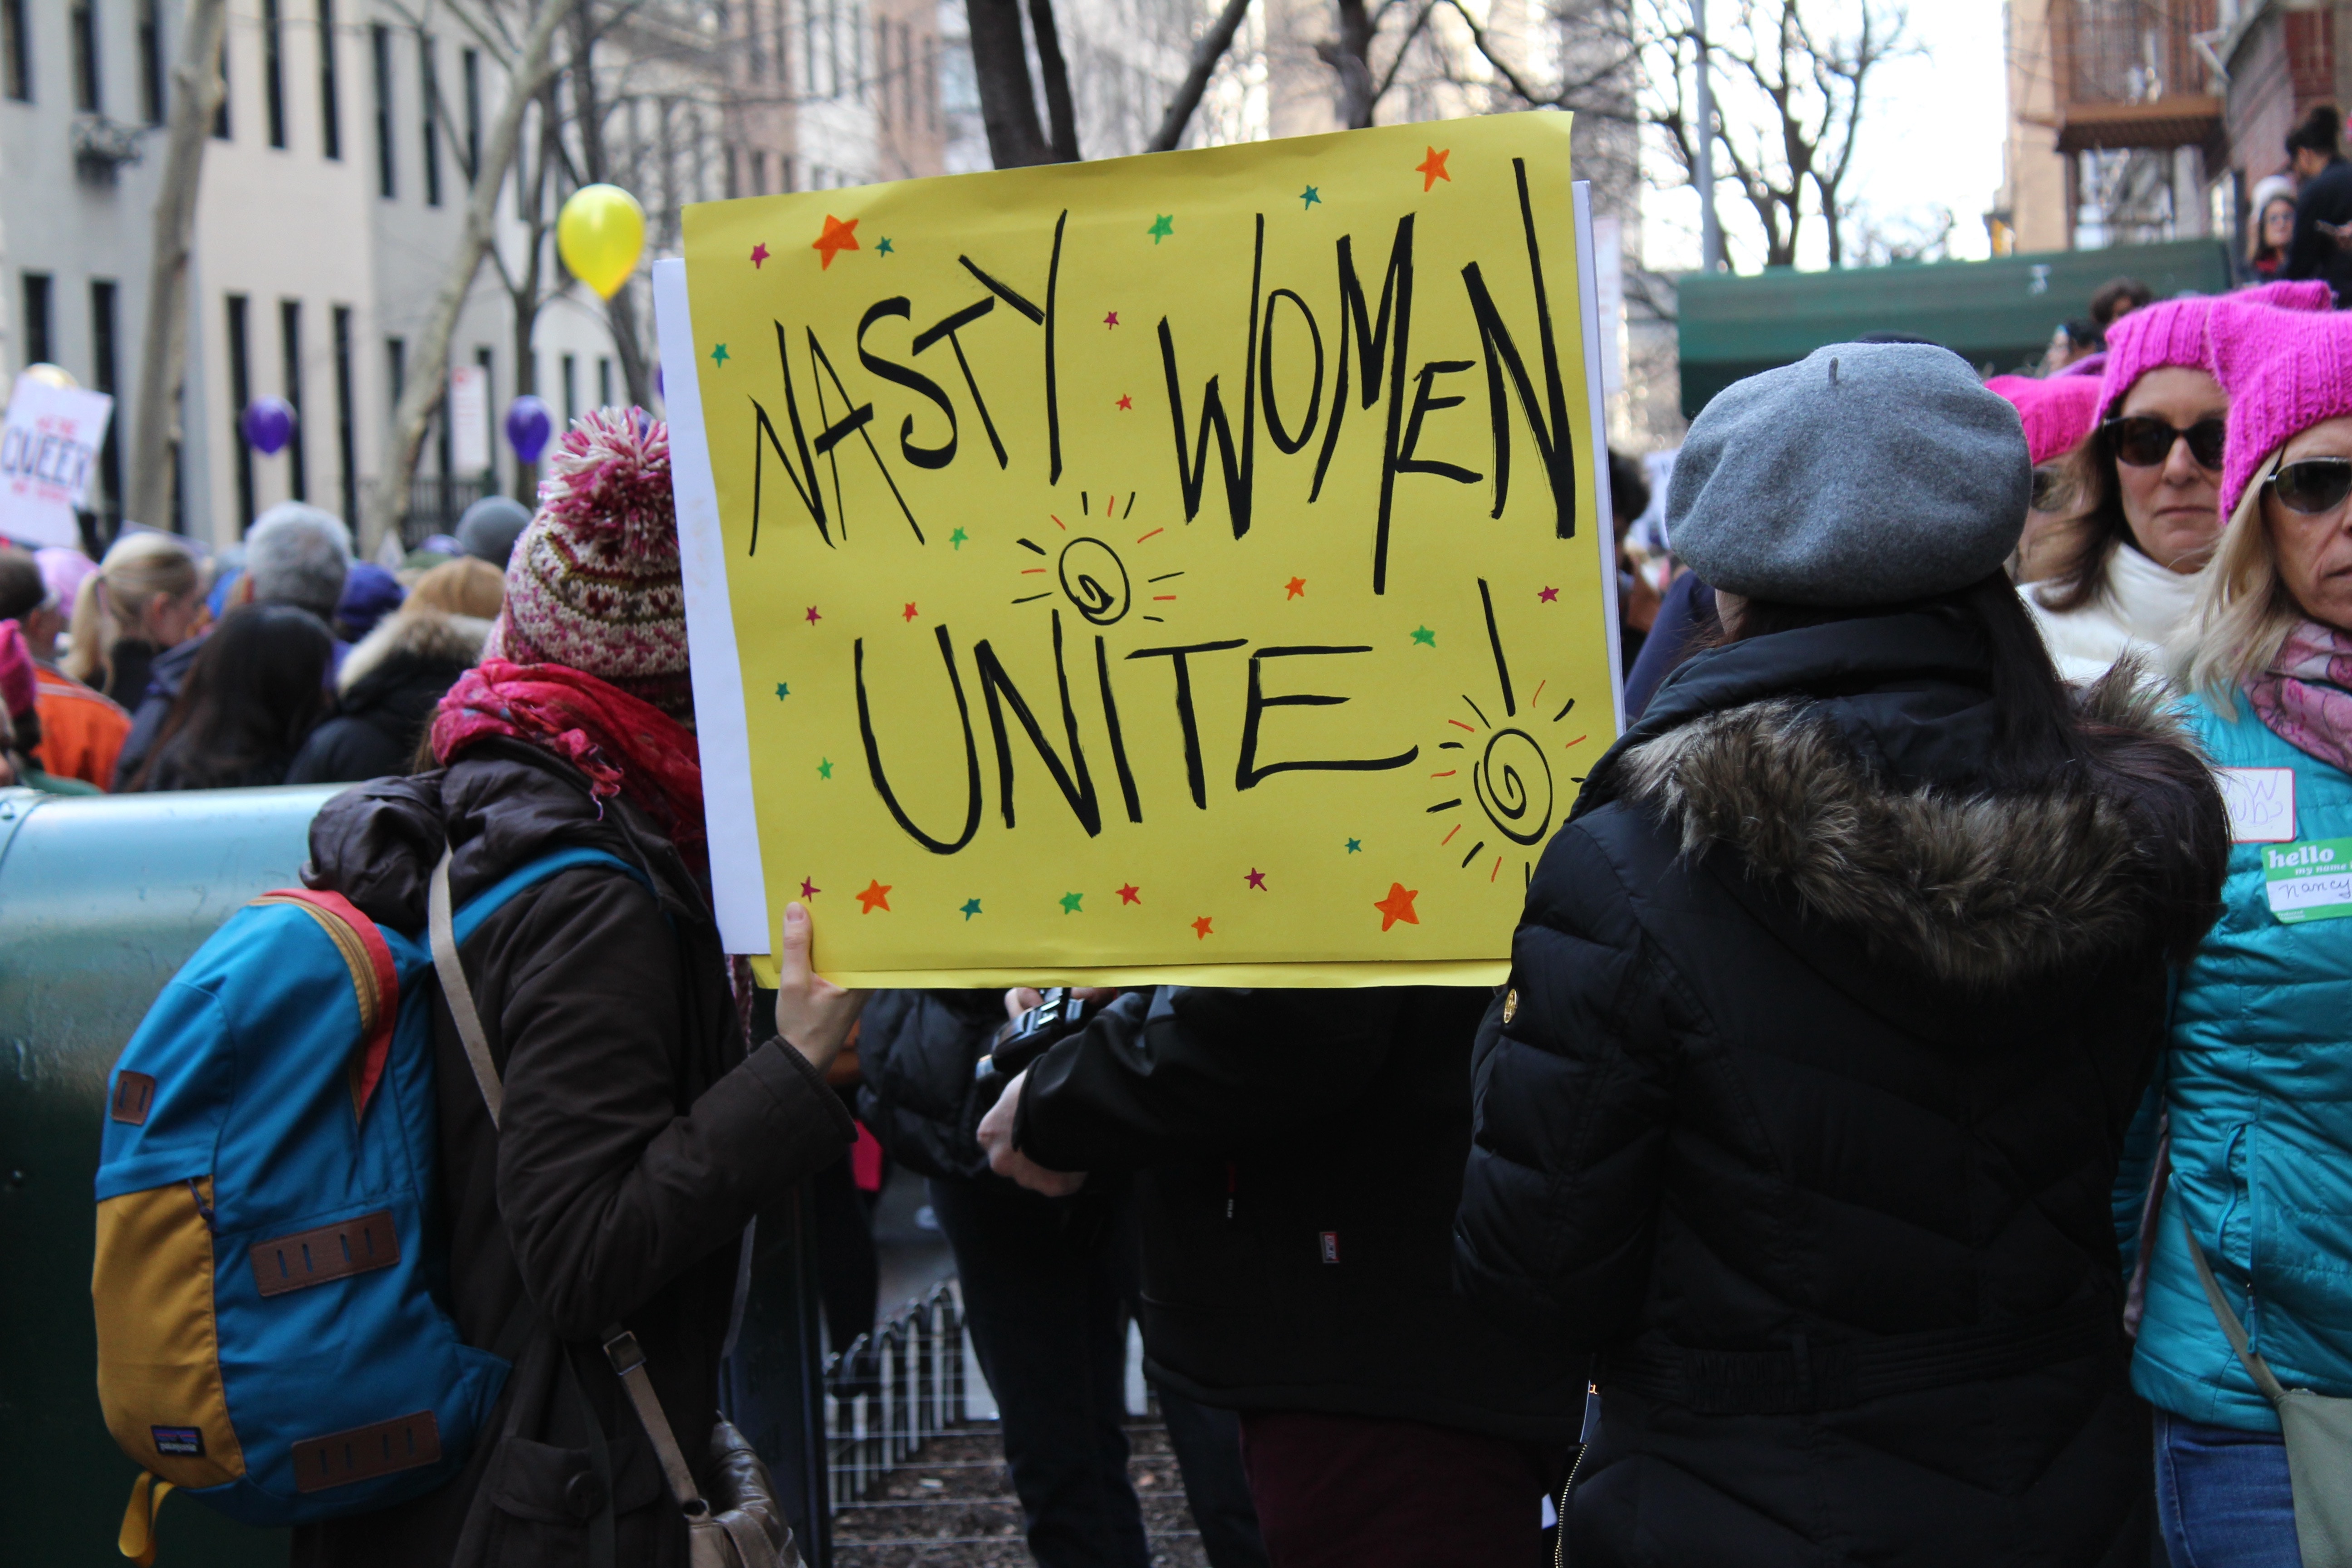 NASTY WOMEN
UNITE!
QUEER
hello
my name
nancy
patagonia